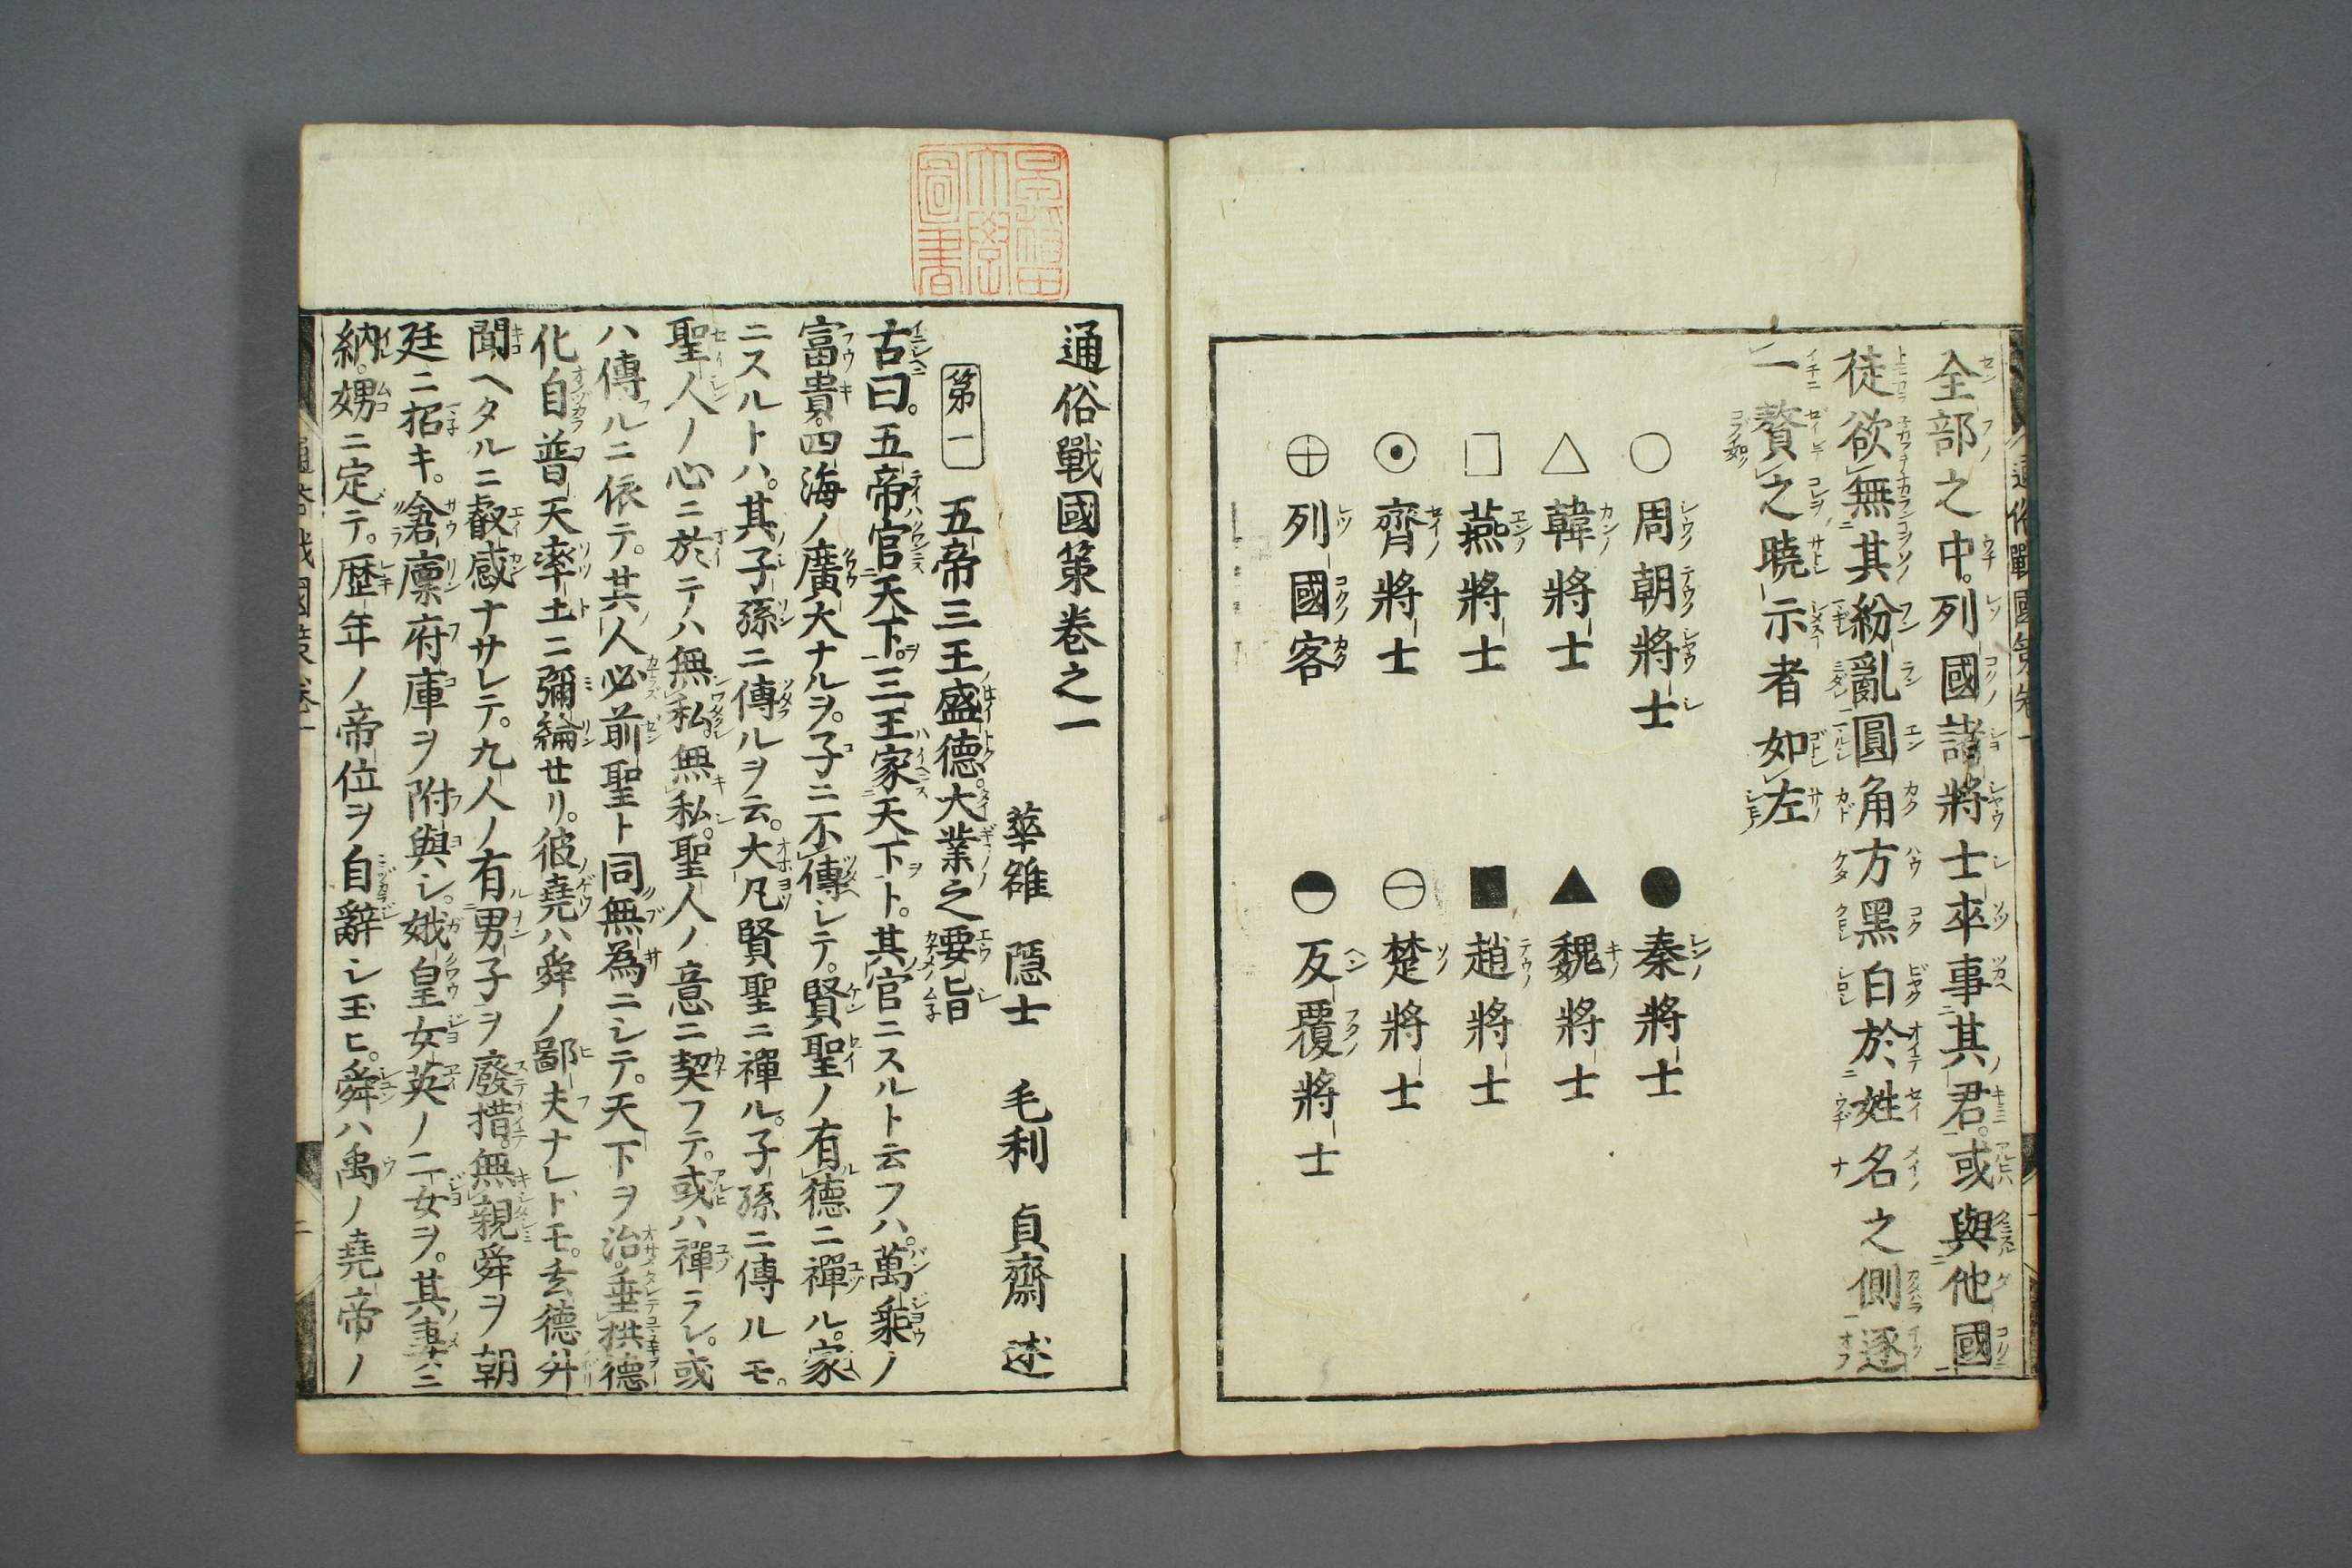 全部之中。列國諸將士卒事其君。或與他國
徒欲無其紛亂圓角方黑白於姓名之側逐
一贅之曉示者如左
○周朝將士 ●秦將士
△韓將士 ▲魏將士
□燕將士 ■趙將士
⊙齊將士 ⊖楚將士
⊕列國客 ◒反覆將士
通俗戰國策卷之一
華雒 隱士 毛利 貞齋 述
第一 五帝三王盛德。大業之要旨
古曰。五帝官天下。三王家天下ト。其官ニスルト云フハ。萬乘ノ
富貴。四海ノ廣大ナルヲ。子ニ不傳シテ。賢聖ノ有德ニ禪ル。家
ニスルトハ。其子孫ニ傳ルヲ云。大凡賢聖ニ禪ル。子孫ニ傳ルモ。
聖人ノ心ニ於テハ無私。無私。聖人ノ意ニ契フテ。或ハ禪ラシ。或
ハ傳ルニ依テ。其人必前聖ト同無為ニシテ。天下ヲ治。垂拱德
化自普天率土ニ彌綸せリ。彼堯ハ舜ノ鄙夫ナレドモ。玄德升
聞ヘタルニ叡感ナサレテ。九人ノ有男子ヲ廢措。無親舜ヲ朝
廷ニ招キ。倉廩府庫ヲ附與シ。娥皇女英ノ二女ヲ。其妻ニ
納。娚ニ定テ。歴年ノ帝位ヲ自辭シ玉ヒ。舜ハ禹ノ堯帝ノ